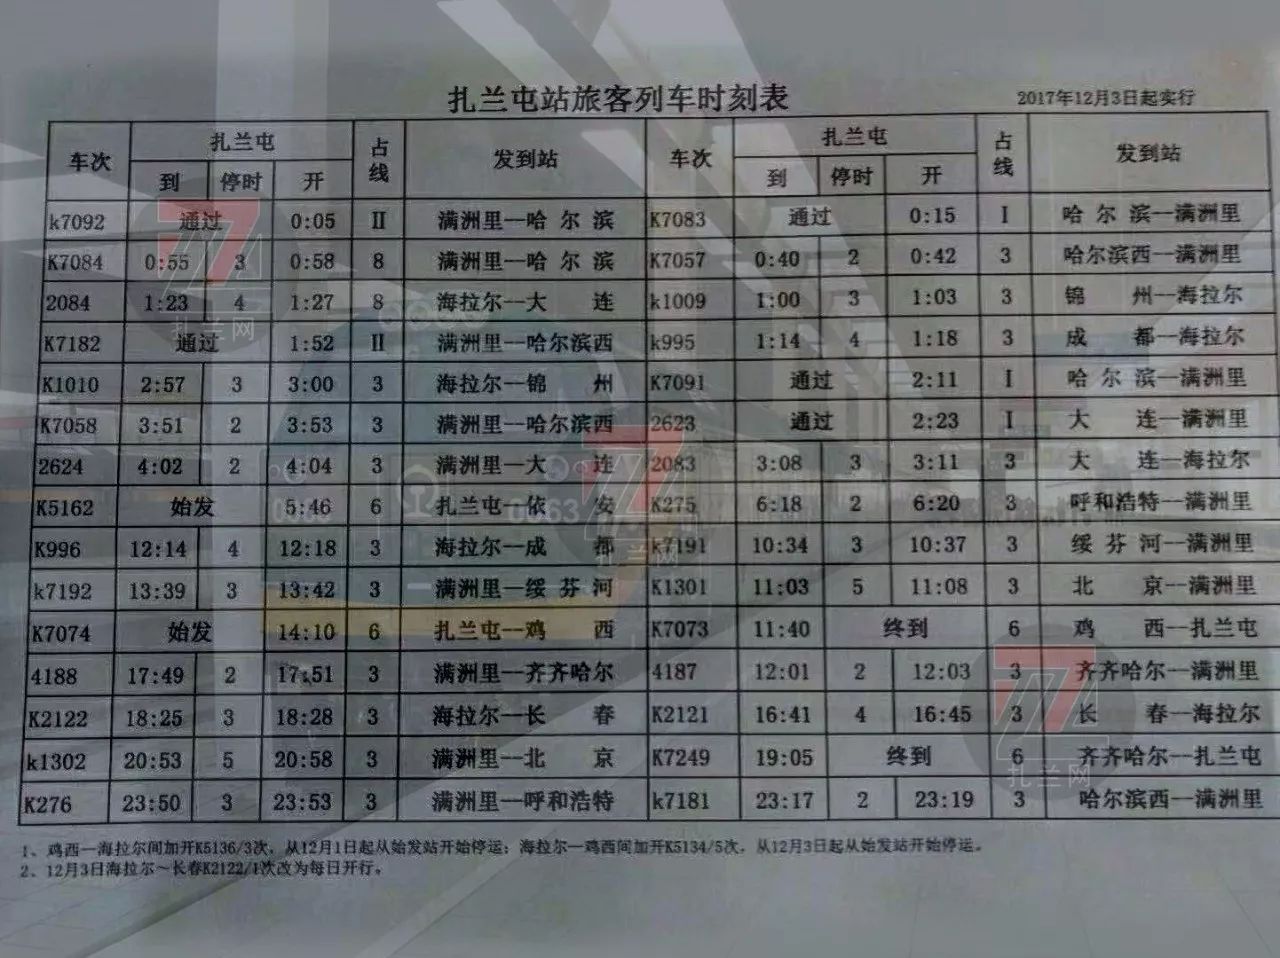 扎兰屯站旅客列车时刻表
2017年12月3日起实行
车次 扎兰屯 占线 发到站 车次 扎兰屯 占线 发到站
到 停时 开 到 停时 开
k7092 通过 0:05 II 满洲里—哈尔滨 K7083 通过 0:15 I 哈尔滨—满洲里
K7084 0:55 3 0:58 8 满洲里—哈尔滨 K7057 0:40 2 0:42 3 哈尔滨西—满洲里
2084 1:23 4 1:27 8 海拉尔—大连 k1009 1:00 3 1:03 3 锦州—海拉尔
K7182 通过 1:52 II 满洲里—哈尔滨西 k995 1:14 4 1:18 3 成都—海拉尔
K1010 2:57 3 3:00 3 海拉尔—锦州 K7091 通过 2:11 I 哈尔滨—满洲里
K7058 3:51 2 3:53 3 满洲里—哈尔滨西 2623 通过 2:23 I 大连—满洲里
2624 4:02 2 4:04 3 满洲里—大连 2083 3:08 3 3:11 3 大连—海拉尔
K5162 始发 5:46 6 扎兰屯—依安 K275 6:18 2 6:20 3 呼和浩特—满洲里
K996 12:14 4 12:18 3 海拉尔—成都 k7191 10:34 3 10:37 3 绥芬河—满洲里
k7192 13:39 3 13:42 3 满洲里—绥芬河 K1301 11:03 5 11:08 3 北京—满洲里
K7074 始发 14:10 6 扎兰屯—鸡西 K7073 11:40 终到 6 鸡西—扎兰屯
4188 17:49 2 17:51 3 满洲里—齐齐哈尔 4187 12:01 2 12:03 3 齐齐哈尔—满洲里
K2122 18:25 3 18:28 3 海拉尔—长春 K2121 16:41 4 16:45 3 长春—海拉尔
k1302 20:53 5 20:58 3 满洲里—北京 K7249 19:05 终到 6 齐齐哈尔—扎兰屯
K276 23:50 3 23:53 3 满洲里—呼和浩特 k7181 23:17 2 23:19 3 哈尔滨西—满洲里
1、鸡西—海拉尔间加开K5136/3次，从12月1日起从始发站开始停运；海拉尔—鸡西间加开K5134/5次，从12月3日起从始发站开始停运。
2、12月3日海拉尔～长春K2122/1次改为每日开行。
扎兰网
扎兰网
扎兰网